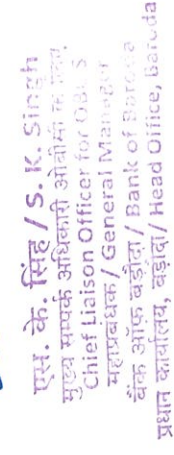 एस. के. सिंह / S. K. Singh
मुख्य सम्पर्क अधिकारी ओबीसी
Chief Liaison Officer for OBC
महाप्रबंधक / General Manager
बैंक ऑफ बड़ौदा / Bank of Baroda
प्रधान कार्यालय, बड़ौदा / Head Office, Baroda